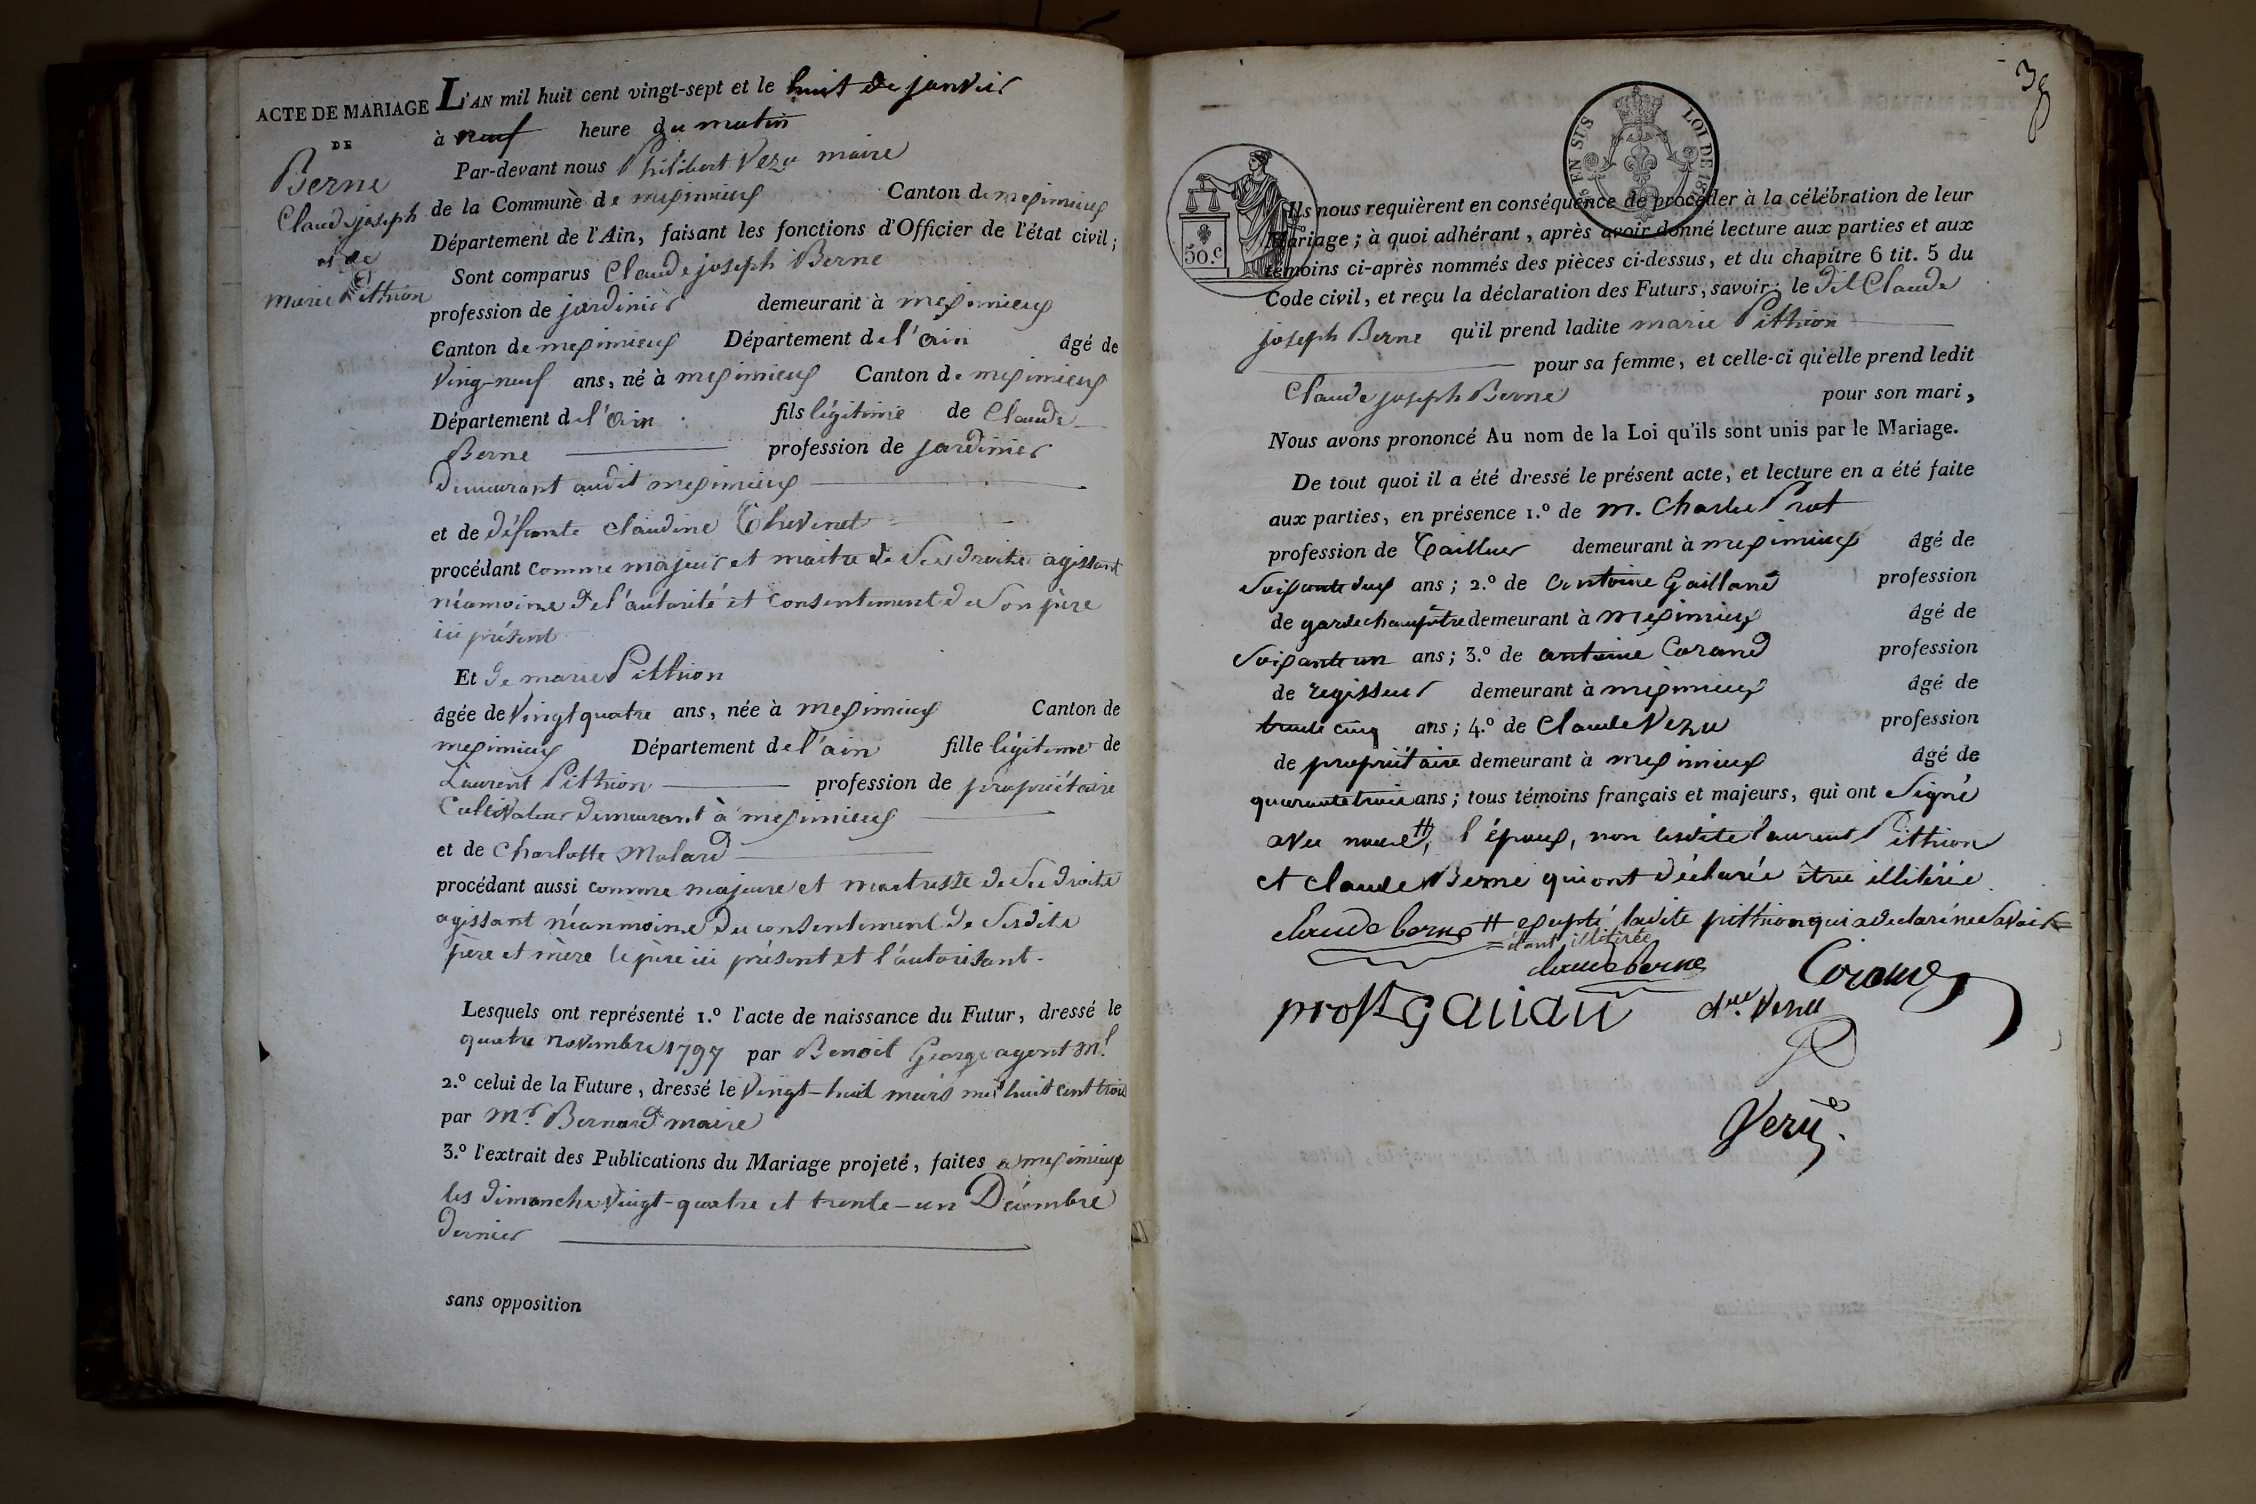 ACTE DE MARIAGE
DE
Berne
Claude joseph
et de
marie Pithion
L'AN mil huit cent vingt-sept et le huit de janvier
à neuf heure du matin
Par-devant nous Philibert Vezu maire
de la Commune de meximieux Canton de meximieux
Département de l'Ain, faisant les fonctions d'Officier de l'état civil;
Sont comparus Claude joseph Berne
profession de jardinier demeurant à meximieux
Canton de meximieux Département de l'ain âgé de
Ving-neuf ans, né à meximieux Canton de meximieux
Département de l'ain fils légitime de Claude
Berne profession de jardinier
demeurant audit meximieux
et de défunte claudine Thevenet
procédant comme majeur et maitre de ses droits agissant
néamoins de l'autorité et consentement de son père
ici présent
Et de marie Pithion
âgée de Vingt quatre ans, née à meximieux Canton de
meximieux Département de l'ain fille légitime de
Laurent Pithion profession de propriétaire
Cultivateur demeurant à meximieux
et de Charlotte Molard
procédant aussi comme majeure et maitresse de ses droits
agissant néanmoins du consentement de sesdits
père et mère le père ici présent et l'autorisant.
Lesquels ont représenté 1.º l'acte de naissance du Futur, dressé le
quatre novembre 1797 par Benoit George agent m.l
2.º celui de la Future, dressé le Vingt-huit mars mil huit cent trois
par m.r Bernard maire
3.º l'extrait des Publications du Mariage projeté, faites a meximieux
les dimanches Vingt-quatre et trente-un Décembre
dernier
sans opposition
38
EN SUS LOI DE 18
50.c
Ils nous requièrent en conséquence de procéder à la célébration de leur
Mariage; à quoi adhérant, après avoir donné lecture aux parties et aux
témoins ci-après nommés des pièces ci-dessus, et du chapitre 6 tit. 5 du
Code civil, et reçu la déclaration des Futurs, savoir: le dit Claude
joseph Berne qu'il prend ladite marie Pithion
pour sa femme, et celle-ci qu'elle prend ledit
Claude joseph Berne pour son mari,
Nous avons prononcé Au nom de la Loi qu'ils sont unis par le Mariage.
De tout quoi il a été dressé le présent acte, et lecture en a été faite
aux parties, en présence 1.º de m. Charles Prot
profession de Tailleur demeurant à meximieux âgé de
soixante dix ans; 2.º de Antoine Gailland profession
de garde champêtre demeurant à meximieux âgé de
soixante un ans; 3.º de antoine Corand profession
de regisseur demeurant à meximieux âgé de
trente cinq ans; 4.º de Claude Vezu profession
de propriétaire demeurant à meximieux âgé de
quarante trois ans; tous témoins français et majeurs, qui ont Signé
avec nous #, l'époux, non lesdits laurent Pithion
et claude Berne qui ont déclarés être illitérés.
claude berne # excepté ladite pithion qui a declaré ne savoir =
= étant illitirée
claude berne Corand
prost Gailan Vezu
Vezu